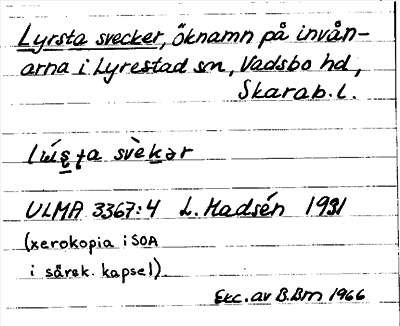 Lyrsta svecker, öknamn på invån-
arna i Lyrestad sn, Vadsbo hd,
Skarab. l.
sve̊kər
ULMA 3367:4 L. Madsén 1931
(xerokopia i SOA
i särsk. kapsel)
Exc. av B.Bm 1966